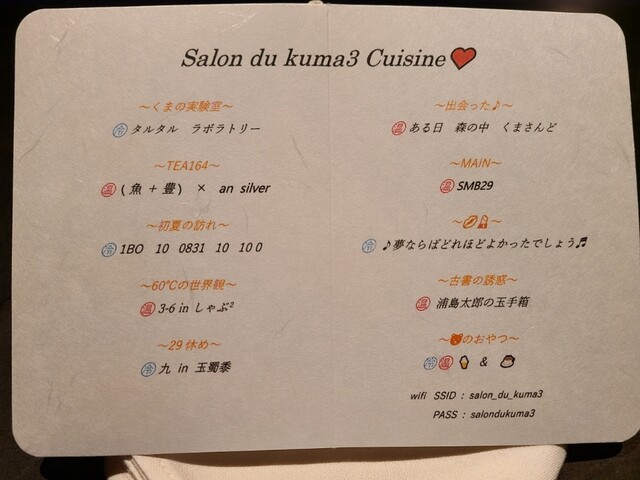 Salon du kuma3 Cuisine❤
～くまの実験室～
冷 タルタル ラボラトリー
～TEA164～
温 (魚 + 豊) × an silver
～初夏の訪れ～
冷 1BO 10 0831 10 10 0
～60℃の世界観～
温 3-6 in しゃぶ²
～29 休め～
冷 九 in 玉蜀黍
～出会った♪～
温 ある日 森の中 くまさんど
～MAIN～
温 SMB29
～🍋～
冷 ♪夢ならばどれほどよかったでしょう♬
～古書の誘惑～
温 浦島太郎の玉手箱
～🐻のおやつ～
冷 温 🍦 &
wifi SSID : salon_du_kuma3
PASS : salondukuma3